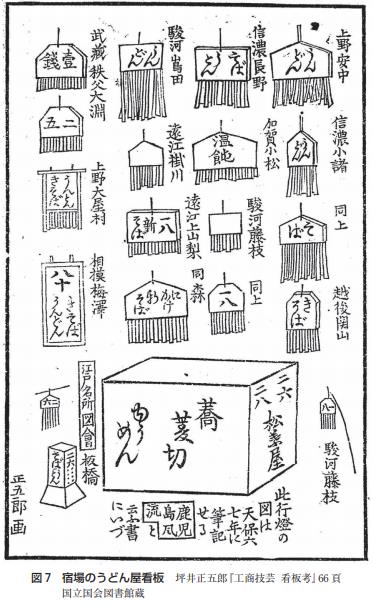 上野安中
うんどん
信濃長野
駿河島田
うんどん
武藏秩父大淵
壹錢
二五
信濃小諸
うんどん
加賀小松
温飩
遠江掛川
上野大屋村
うんどん
きそば
同上
そば
駿河藤枝
遠江上山梨
新そば
相模梅澤
八十
うんどん
越後関山
きそば
同上
二八
同森
そば
駿河藤枝
二六
二八
松葉屋
蕎麦切
うめん
此行燈の
図は
天保六
七年に
筆記
せる
鹿児
島風
流と
云ふ書
にいづ
江戸名所図會
板橋
正五郎画
図7　宿場のうどん屋看板　坪井正五郎『工商技芸　看板考』66頁
国立国会図書館蔵